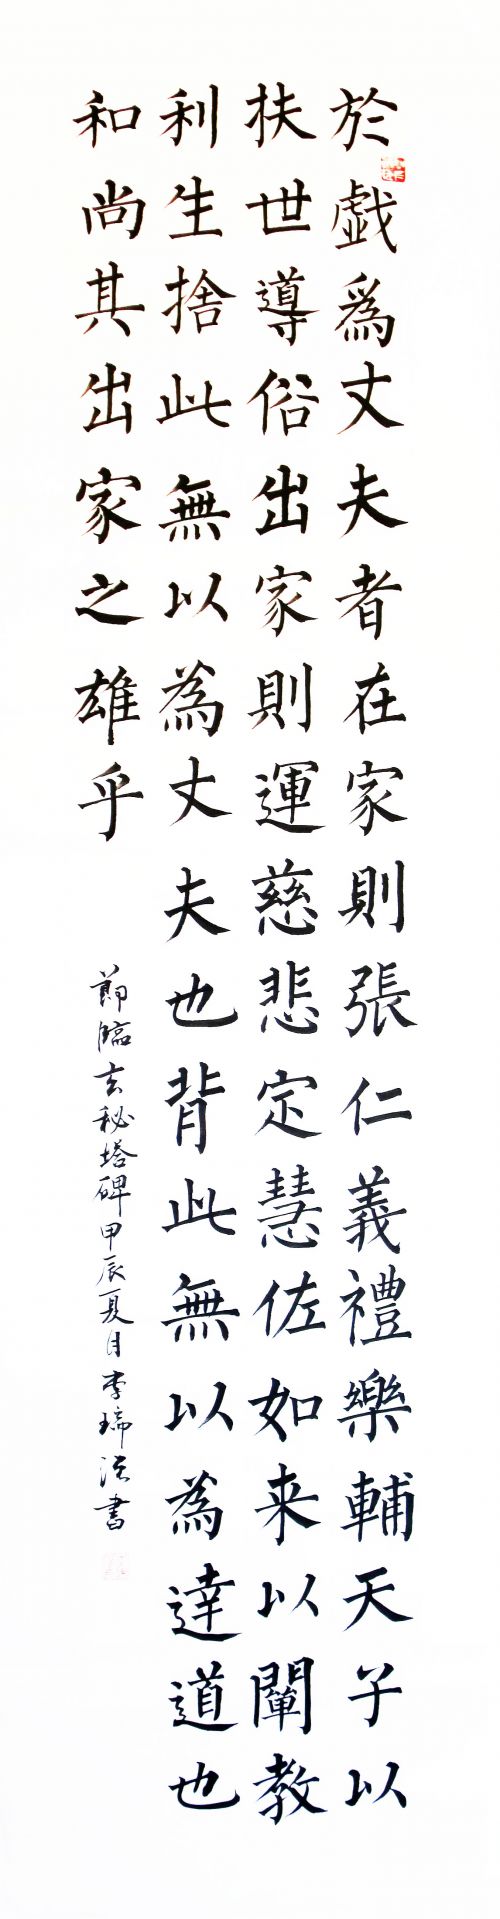 於戯爲丈夫者在家則張仁義禮樂輔天子以
扶世導俗出家則運慈悲定慧佐如来以闡教
利生捨此無以為丈夫也背此無以為達道也
和尚其出家之雄乎
節臨玄秘塔碑甲辰夏月李瑞書